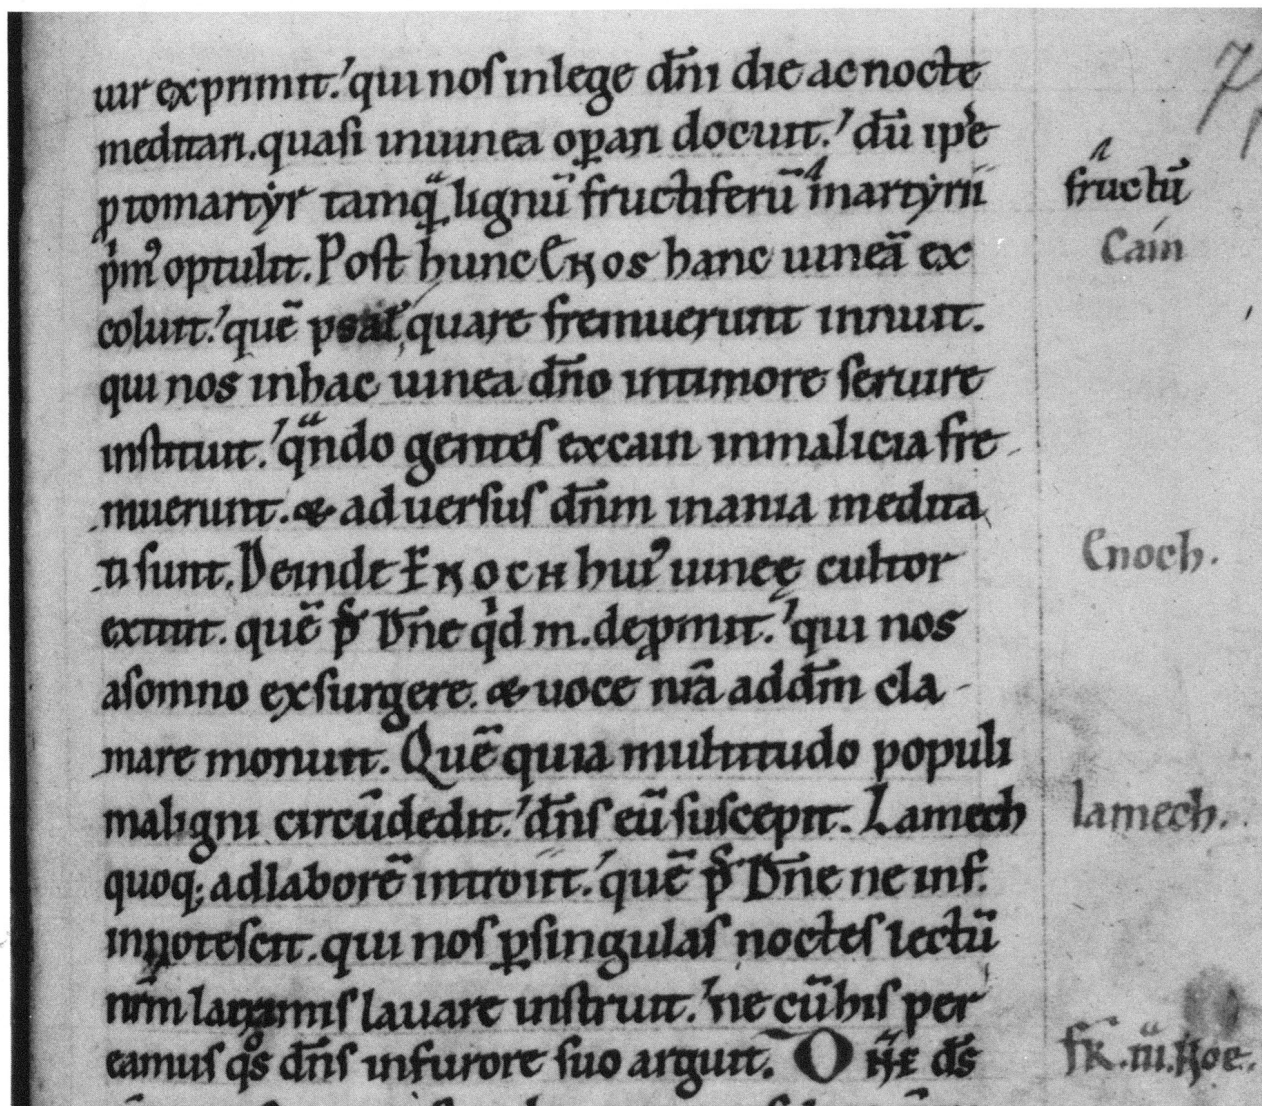 uir exprimit. qui nos in lege dn̄i die ac nocte
meditari. quasi in uinea oꝑari docuit. dū ip̄e
ꝓtomartẏr tamq̄ lignū fructiferū martẏrii
fructū
pͥmꝰ optulit. Post hunc Enos hanc uineā ex
Cain
coluit. quē psal̄ quare fremuerunt innuit.
qui nos in hac uinea dn̄o in timore seruire
instituit. qᷓndo gentes ex cain in malicia fre-
muerunt. & aduersus dn̄m inania medita
ti sunt. Deinde ENOCH huiꝰ uineę cultor
Enoch.
extitit. quē p̄s Dn̄e qͥd m. deꝓmit. qui nos
a somno exsurgere. & uoce nr̄a ad dn̄m cla-
mare monuit. Quē quia multitudo populi
maligni circūdedit. dn̄s eū suscepit. Lamech
lamech.
quoq; ad laborē introiit. quē p̄s Dn̄e ne inf.
innotescit. qui nos ꝑ singulas noctes lectū
nr̄m lacrimis lauare instruit. ne cū his per
eamus qͦs dn̄s in furore suo arguit. O NE ds̄
.iii. Noe.